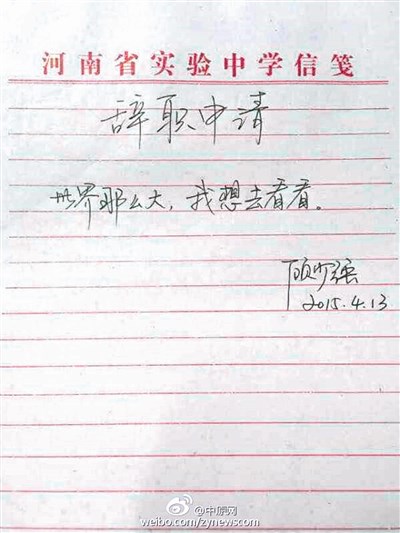 河南省实验中学信笺
辞职申请
世界那么大，我想去看看。
顾少强
2015.4.13
@中原网
weibo.com/zynewscom